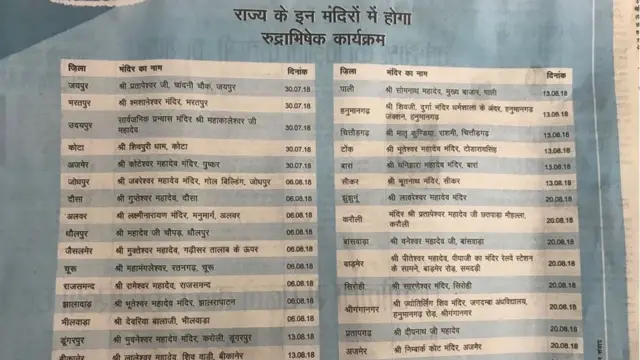 राज्य के इन मंदिरों में होगा
रुद्राभिषेक कार्यक्रम
ज़िला मंदिर का नाम दिनांक
जयपुर श्री प्रतापेश्वर जी, चांदनी चौक, जयपुर 30.07.18
भरतपुर श्री श्मशानेश्वर मंदिर, भरतपुर 30.07.18
उदयपुर सार्वजनिक प्रन्यास मंदिर श्री महाकालेश्वर जी
महादेव 30.07.18
कोटा श्री शिवपुरी धाम, कोटा 30.07.18
अजमेर श्री कोटेश्वर महादेव मंदिर, पुष्कर 30.07.18
जोधपुर श्री जबरेश्वर महादेव मंदिर, गोल बिल्डिंग, जोधपुर 06.08.18
दौसा श्री गुप्तेश्वर महादेव, दौसा 06.08.18
अलवर श्री लक्ष्मीनारायण मंदिर, मनुमार्ग, अलवर 06.08.18
धौलपुर श्री महादेव जी चौपड़, धौलपुर 06.08.18
जैसलमेर श्री मुक्तेश्वर महादेव, गड़ीसर तालाब के ऊपर 06.08.18
चूरू श्री महामंगलेश्वर, रतनगढ़, चूरू 06.08.18
राजसमन्द श्री रामेश्वर महादेव, राजसमन्द 06.08.18
झालावाड़ श्री भूतेश्वर महादेव मंदिर, झालरापाटन 06.08.18
भीलवाड़ा श्री देवरिया बालाजी, भीलवाड़ा 06.08.18
डूंगरपुर श्री भुवनेश्वर महादेव मंदिर, करोली, डूंगरपुर 13.08.18
बीकानेर श्री लालेश्वर महादेव मंदिर, शिव वाड़ी, बीकानेर 13.08.18
ज़िला मंदिर का नाम दिनांक
पाली श्री सोमनाथ महादेव, मुख्य बाजार, पाली 13.08.18
हनुमानगढ़ श्री शिवजी, दुर्गा मंदिर धर्मशाला के अंदर, हनुमानगढ़
जंक्शन, हनुमानगढ़ 13.08.18
चित्तौड़गढ़ श्री मातृ कुण्डिया, राशमी, चित्तौड़गढ़ 13.08.18
टोंक श्री भूतेश्वर महादेव मंदिर, टोडारायसिंह 13.08.18
बारां श्री मनिहारा महादेव मंदिर, बारां 13.08.18
सीकर श्री भूतनाथ मंदिर, सीकर 13.08.18
झुंझुनूं श्री लावरेश्वर महादेव मंदिर 20.08.18
करौली मंदिर श्री प्रतापेश्वर महादेव जी छतपाड़ा मौहल्ला,
करौली 20.08.18
बांसवाड़ा श्री वनेश्वर महादेव जी, बांसवाड़ा 20.08.18
बाड़मेर श्री पीतेश्वर महादेव, पीपाजी का मंदिर रेलवे स्टेशन
के सामने, बाड़मेर रोड, समदड़ी 20.08.18
सिरोही श्री सारणेश्वर मंदिर, सिरोही 20.08.18
श्रीगंगानगर श्री ज्योतिर्लिंग शिव मंदिर, जगदम्बा अंधविद्यालय,
हनुमानगढ़ रोड, श्रीगंगानगर 20.08.18
प्रतापगढ़ श्री दीपनाथ जी महादेव 20.08.18
अजमेर श्री निम्बार्क कोट मंदिर, अजमेर 20.08.18